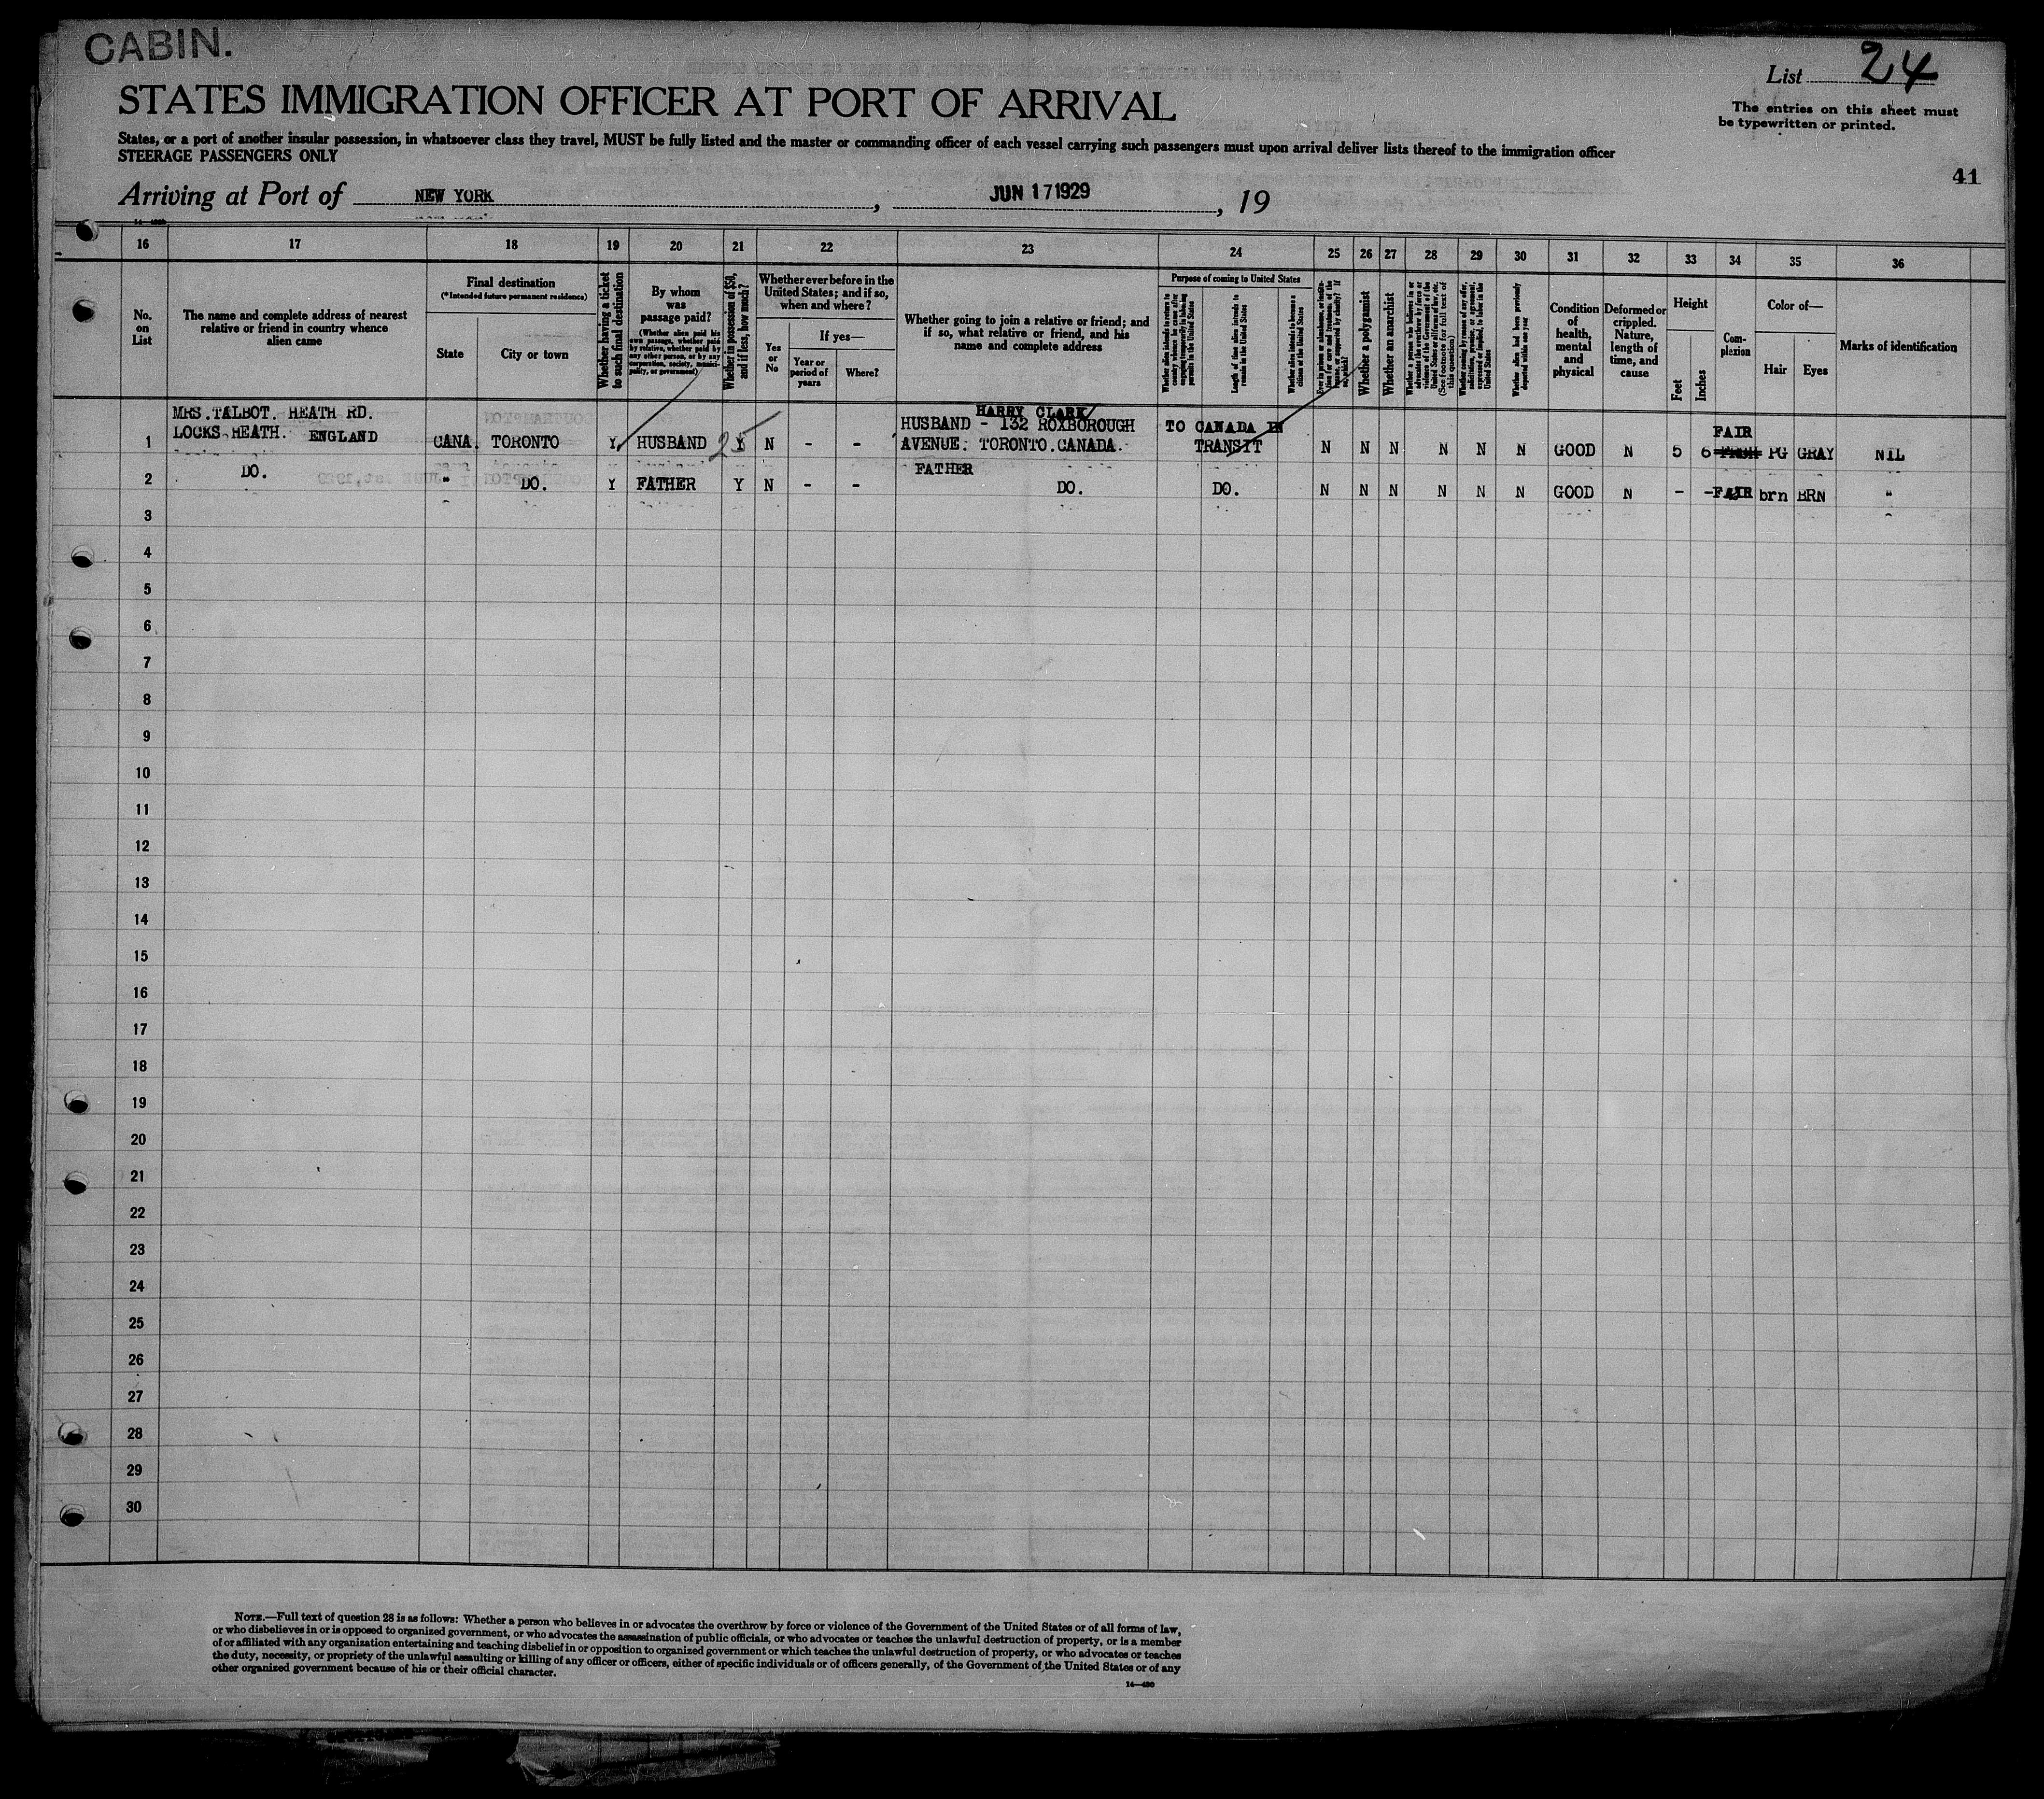 CABIN.
List 24
STATES IMMIGRATION OFFICER AT PORT OF ARRIVAL
The entries on this sheet must
be typewritten or printed.
States, or a port of another insular possession, in whatsoever class they travel, MUST be fully listed and the master or commanding officer of each vessel carrying such passengers must upon arrival deliver lists thereof to the immigration officer
STEERAGE PASSENGERS ONLY
41
Arriving at Port of NEW YORK, JUN 17 1929, 19
16 17 18 19 20 21 22 23 24 25 26 27 28 29 30 31 32 33 34 35 36
No. on List
The name and complete address of nearest relative or friend in country whence alien came
Final destination
(*Intended future permanent residence)
State
City or town
Whether having a ticket to such final destination
By whom was passage paid?
(Whether alien paid his own passage, whether paid by relative, whether paid by any other person, or by any corporation, society, municipality, or government)
Whether in possession of $50, and if less, how much?
Whether ever before in the United States; and if so, when and where?
Yes or No
If yes—
Year or period of years
Where?
Whether going to join a relative or friend; and if so, what relative or friend, and his name and complete address
Purpose of coming to United States
Whether alien intends to return to country whence he came after engaging temporarily in laboring pursuits in United States
Length of time alien intends to remain in the United States
Whether alien intends to become a citizen of the United States
Whether a polygamist
Whether an anarchist
(See footnote for full text of this question)
Whether alien had been previously deported within one year
Condition of health, mental and physical
Deformed or crippled. Nature, length of time, and cause
Height
Feet
Inches
Complexion
Color of—
Hair
Eyes
Marks of identification
HARRY CLARK
MRS. TALBOT. HEATH RD. HUSBAND - 132 ROXBOROUGH TO CANADA IN FAIR
1 LOCKS HEATH. ENGLAND CANA. TORONTO Y HUSBAND 25 Y N - - AVENUE. TORONTO. CANADA. TRANSIT N N N N N N GOOD N 5 6 PG GRAY NIL
FATHER
2 DO. " DO. Y FATHER Y N - - DO. DO. N N N N N N GOOD N - - FAIR brn BRN "
3
4
5
6
7
8
9
10
11
12
13
14
15
16
17
18
19
20
21
22
23
24
25
26
27
28
29
30
NOTE.—Full text of question 28 is as follows: Whether a person who believes in or advocates the overthrow by force or violence of the Government of the United States or of all forms of law,
or who disbelieves in or is opposed to organized government, or who advocates the assassination of public officials, or who advocates or teaches the unlawful destruction of property, or is a member
of or affiliated with any organization entertaining and teaching disbelief in or opposition to organized government or which teaches the unlawful destruction of property, or who advocates or teaches
the duty, necessity, or propriety of the unlawful assaulting or killing of any officer or officers, either of specific individuals or of officers generally, of the Government of the United States or of any
other organized government because of his or their official character.
14—430